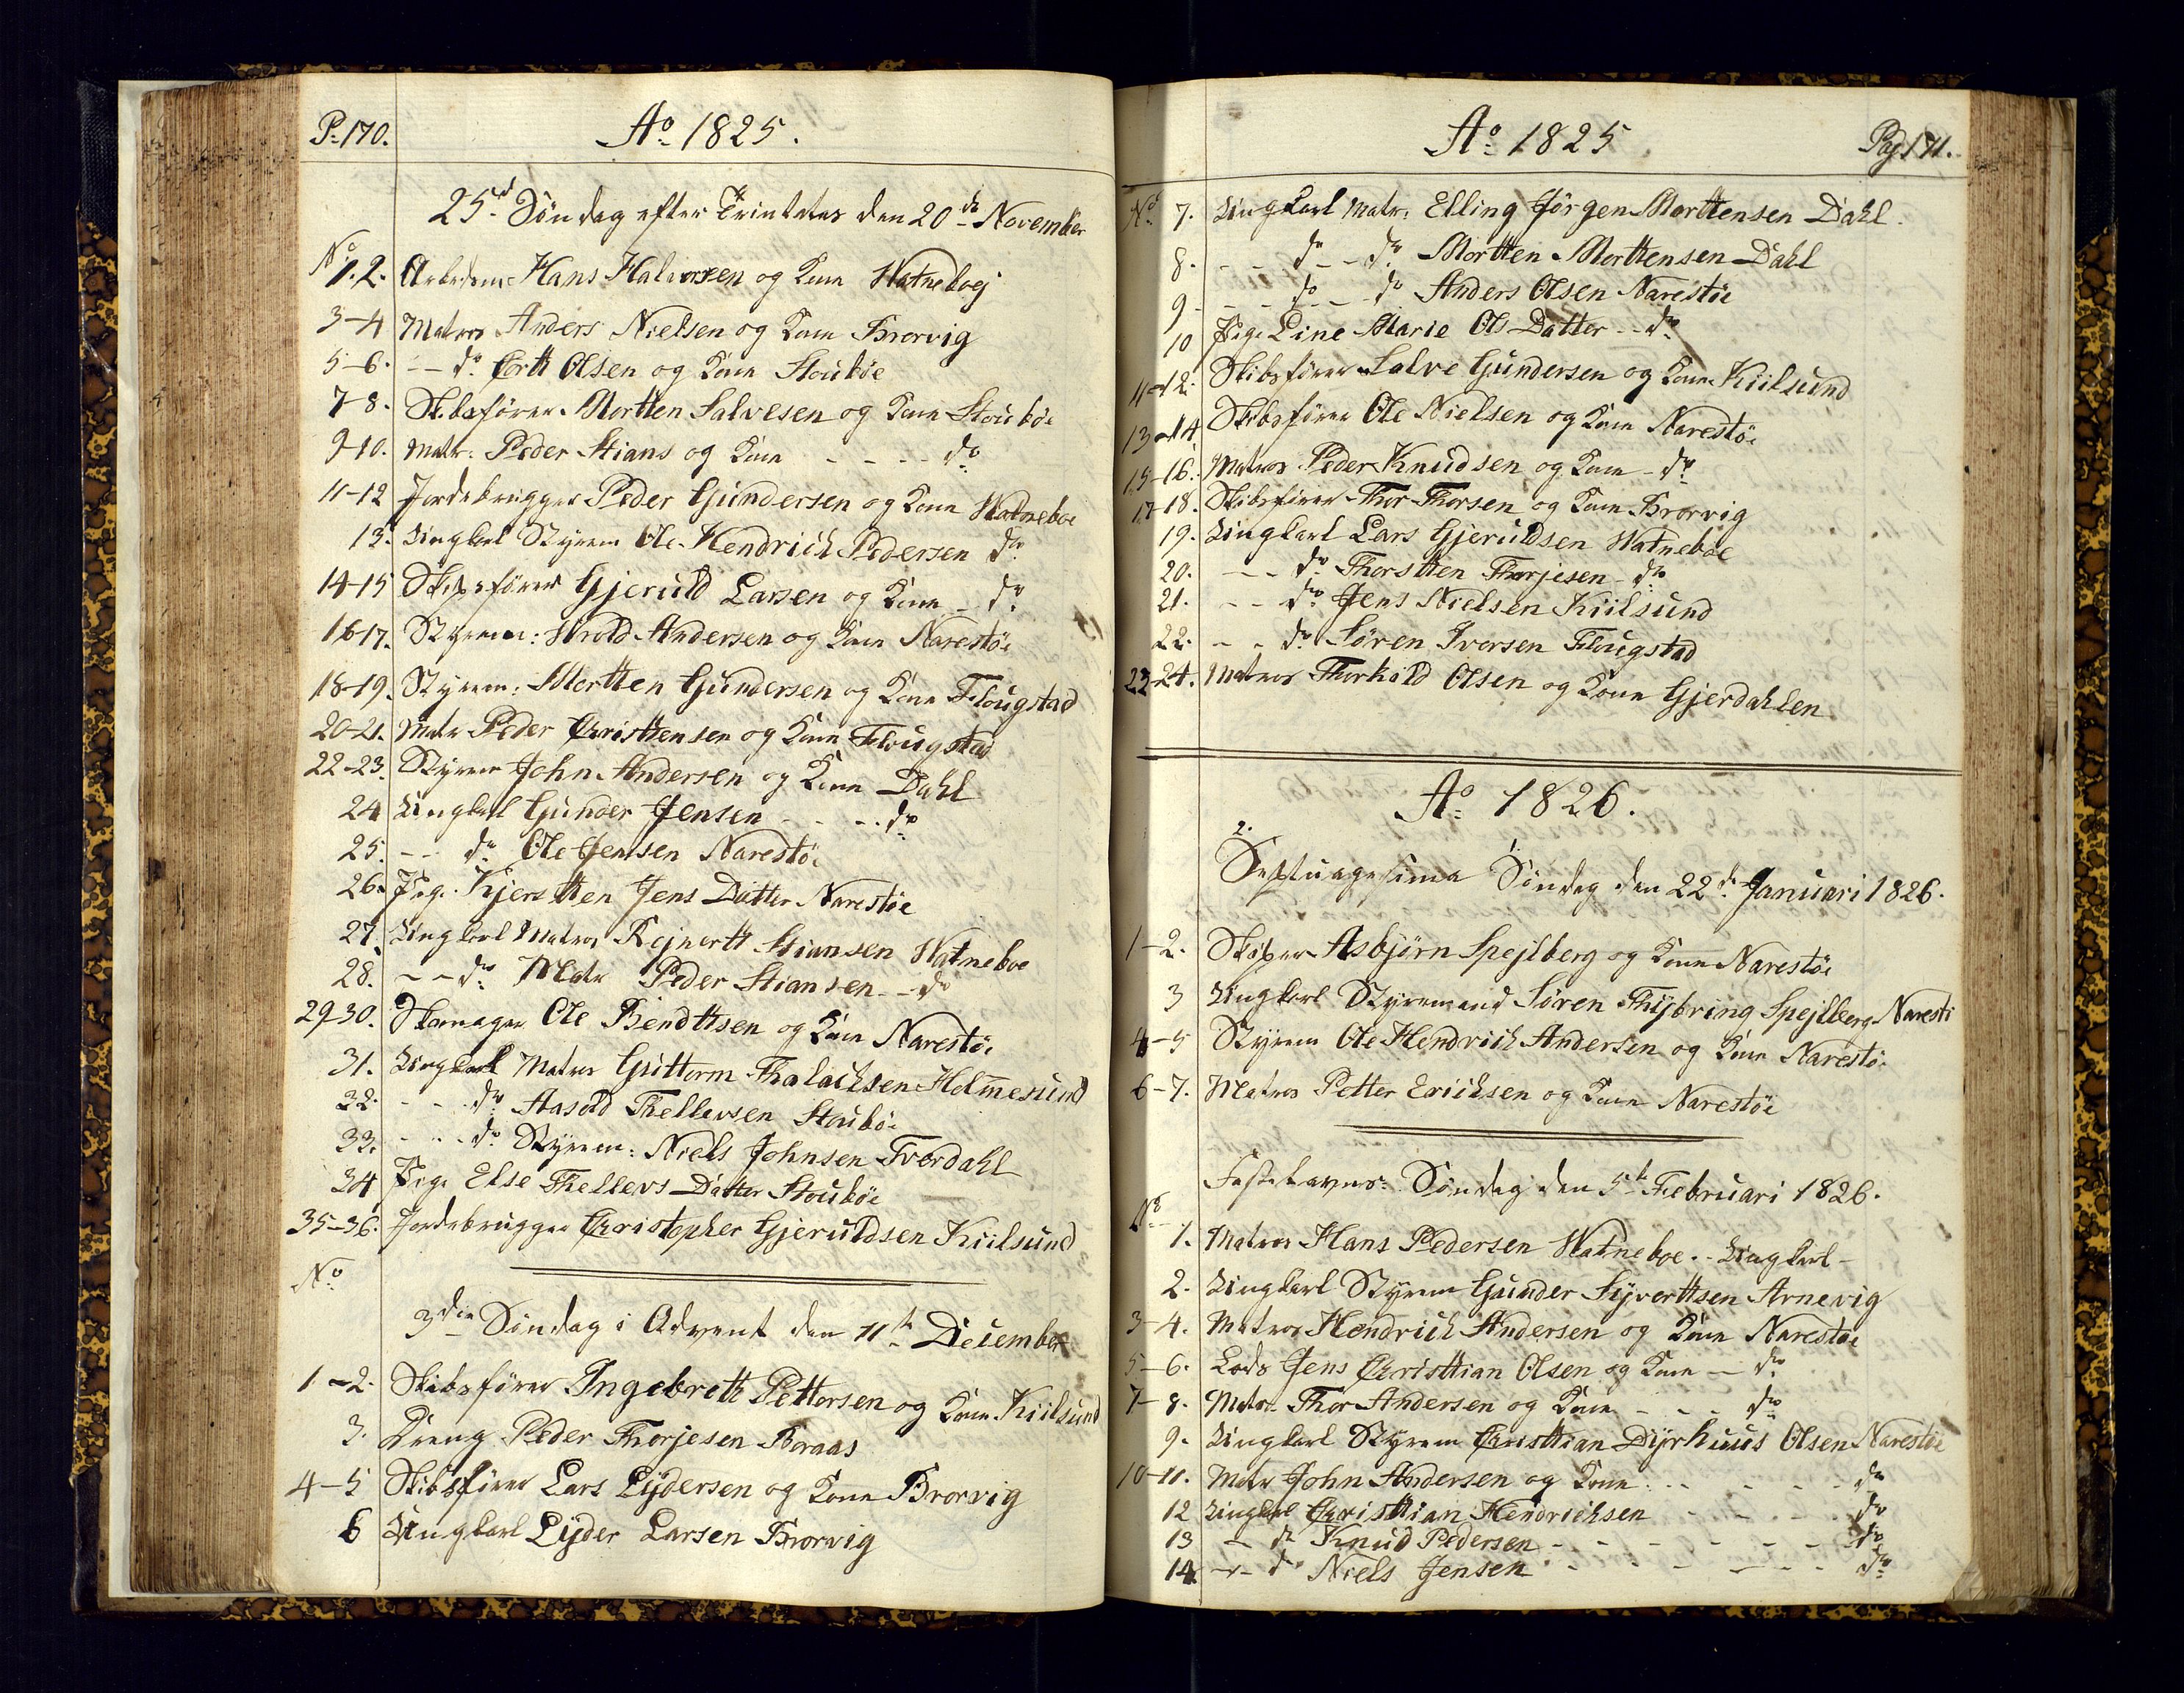 P. 170.
Aº 1825.
25d Söndag efter Trinitatis den 20de November
Nº
1.2. Arbedsm: Hans Halvorsen og Kone Watneboej
3-4 Matros Anders Nielsen og Kone Brorvig
5-6. -- dº Cortt Olsen og Kone Stouböe
7-8. Skibsförer Mortten Salvesen og Kone Stouböe
9-10. Matr: Peder Stians og Kone - - - - dº
11-12 Jordebrugger Peder Gundersen og Kone Watneboe
13. Ungkarl Styrm Ole Hendrich Pedersen dº
14-15 Skipsförer Gjeruld Larsen og Kone - dº
16-17. Styrem: Wrold Andersen og Kone Narestöe
18-19. Styrem: Mortten Gundersen og Kone Flougstad
20-21. Matr Peder Christtensen og Kone Flougstad
22-23. Styrem John Andersen og Kone Dahl
24 Ungkarl Gunder Jensen - - - dº
25. -- dº Ole Jensen Narestöe
26. Pige Kjerstten Jens Datter Narestöe
27. Ungkarl Matros Rejnertt Stiansen Watneboe
28. -- dº Matr Peder Stiansen -- dº
29-30. Skomager Ole Bendttsen og Kone Narestöe
31. Ungkarl Matros Guttorm Thalachsen Holmesund
32. - - dº Aasold Thellevsen Stouböe
33. - - dº Styrem: Niels Johnsen Tverdahl
34 Pige Else Thellevs Datter Stouböe
35-36. Jordebrugger Christopher Gjeruldsen Kiilsund
Nº
3die Söndag i Advent den 11te December
1-2. Skibsförer Ingebrett Pettersen og Kone Kiilsund
3. Dreng Peder Thorjesen Boraas
4-5 Skibsförer Lars Lydersen og Kone Brorvig
6 Ungkarl Lyder Larsen Brorvig
Aº 1825
Pag 171.
Nº 7. Ungkarl Matr: Elling Jörgen Morttensen Dahl.
8. - - dº - - dº Mortten Morttensen Dahl
9 - - - dº - - dº Anders Olsen Narestöe
10 Pige Line Marie Ols Datter -- dº
11-12. Skibsförer Salve Gundersen og Kone Kiilsund
13-14 Skibsförer Ole Nielsen og Kone Narestöe
15-16. Matros Peder Knudsen og Kone - dº
17-18. Skibsförer Thor Thorsen og Kone Brorvig
19. Ungkarl Lars Gjeruldsen Watneboe
20. - - dº Thorstten Thorjesen - dº
21. - - dº Jens Nielsen Kiilsund
22. - - dº Sören Iversen Flougstad
23-24. Matros Thorkild Olsen og Kone Gjerdahlen
Aº 1826.
Septuagesima Söndag den 22de Januari 1826.
1-2. Skiper Asbjörn Spejlberg og Kone Narestöe
3 Ungkarl Styremand Sören Thijbring Spejlberg Naresti
4-5 Styrem Ole Hendrich Andersen og Kone Narestöe
6-7. Matros Petter Erichsen og Kone Narestöe
Fastelavns Söndag den 5te Februari 1826.
Nº
1. Matros Hans Pedersen Watneboe. - Ungkarl -
2. Ungkarl Styrem Gunder Syverttsen Arnevig
3-4. Matros Hendrich Andersen og Kone Narestöe
5-6. Lods Jens Christtian Olsen og Kone - dº
7-8. Matr. Thor Andersen og Kone - - - dº
9. Ungkarl Styrem Christtian Dyrhuus Olsen Narestöe
10-11. Matr John Andersen og Kone . . - - - - - dº
12 Ungkarl Christtian Hendrichsen - - - - dº
13 - dº Knud Pedersen - - - - - - - dº
14. -- dº Niels Jensen - - - - - dº